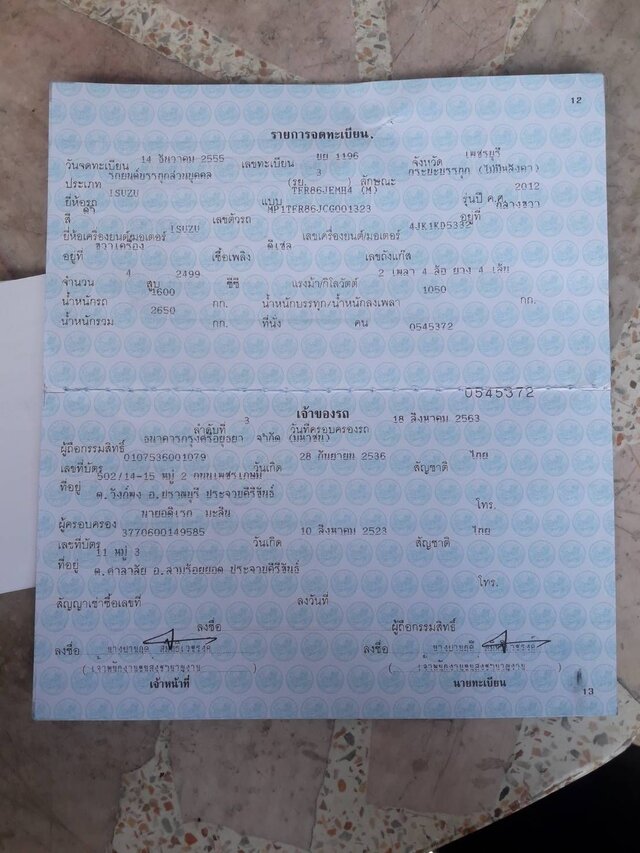 12
รายการจดทะเบียน.
วันจดทะเบียน 14 ธันวาคม 2555 เลขทะเบียน บย 1196 จังหวัด เพชรบุรี
ประเภท รถยนต์บรรทุกส่วนบุคคล (รย. 3 ) ลักษณะ กระบะบรรทุก (ไม่มีหลังคา)
ยี่ห้อรถ ISUZU แบบ TFR86JEMH4 (M) รุ่นปี ค.ศ. 2012
สี ดำ เลขตัวรถ MP1TFR86JCG001323 อยู่ที่ กลางขวา
ยี่ห้อเครื่องยนต์/มอเตอร์ ISUZU เลขเครื่องยนต์/มอเตอร์ 4JK1KD5332
อยู่ที่ ขวาเครื่อง เชื้อเพลิง ดีเซล เลขถังแก๊ส
จำนวน 4 สูบ 2499 ซีซี แรงม้า/กิโลวัตต์ 2 เพลา 4 ล้อ ยาง 4 เส้น
น้ำหนักรถ 1600 กก. น้ำหนักบรรทุก/น้ำหนักลงเพลา 1050 กก.
น้ำหนักรวม 2650 กก. ที่นั่ง คน 0545372
0545372
เจ้าของรถ
ลำดับที่ 3 วันที่ครอบครองรถ 18 สิงหาคม 2563
ผู้ถือกรรมสิทธิ์ ธนาคารกรุงศรีอยุธยา จำกัด (มหาชน)
เลขที่บัตร 0107536001079 วันเกิด 28 กันยายน 2536 สัญชาติ ไทย
ที่อยู่ 502/14-15 หมู่ 2 ถนนเพชรเกษม
ต.วังก์พง อ.ปราณบุรี ประจวบคีรีขันธ์ โทร.
ผู้ครอบครอง นายอดิเรก มะลิน
เลขที่บัตร 3770600149585 วันเกิด 10 สิงหาคม 2523 สัญชาติ ไทย
ที่อยู่ 11 หมู่ 3
ต.ศาลาลัย อ.สามร้อยยอด ประจวบคีรีขันธ์ โทร.
สัญญาเช่าซื้อเลขที่ ลงวันที่
ลงชื่อ ผู้ถือกรรมสิทธิ์
ลงชื่อ ลงชื่อ
เจ้าหน้าที่ นายทะเบียน
13